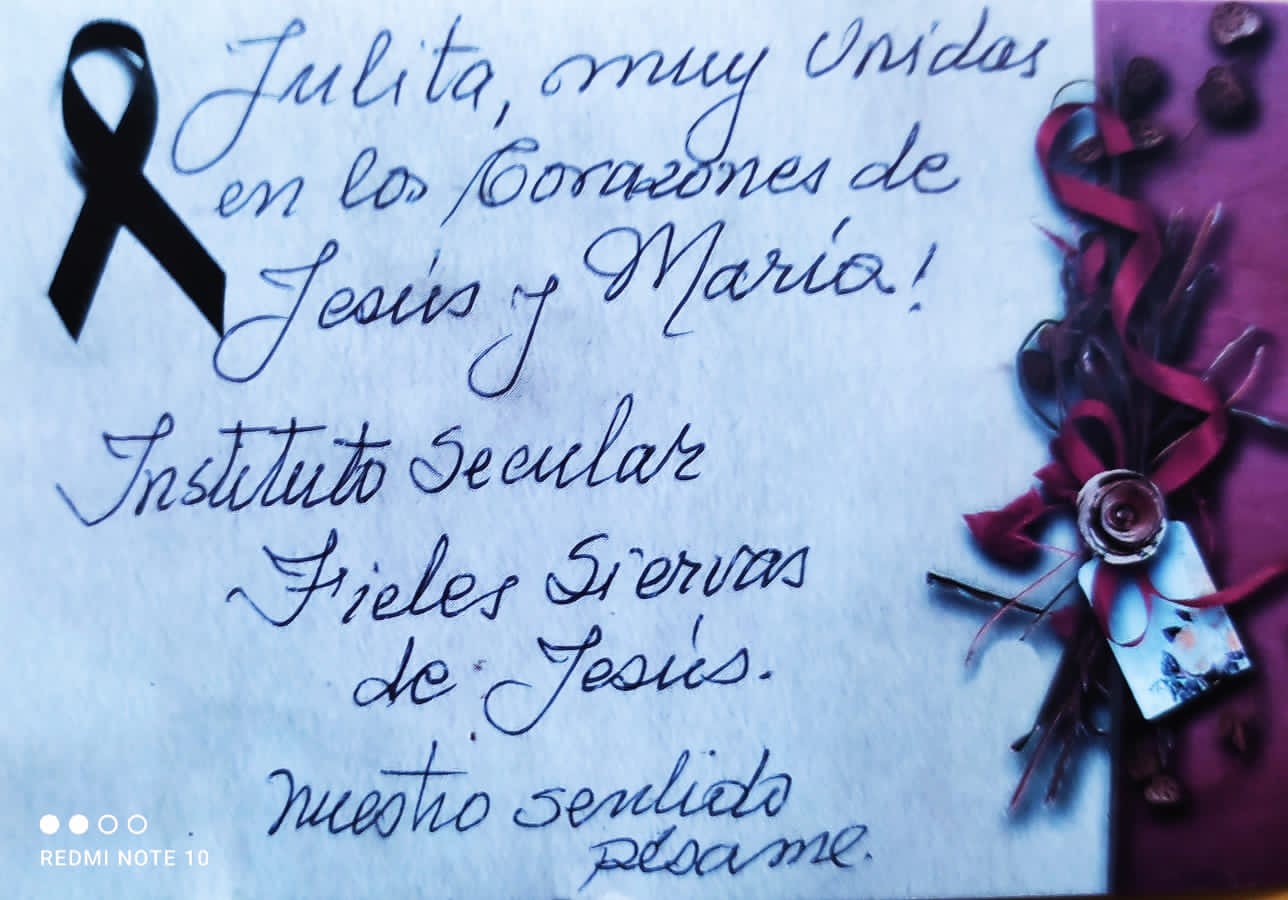 Julita, muy Unidas
en los Corazones de
Jesús y María!
Instituto Secular
Fieles Siervas
de Jesús.
nuestro sentido
pésame.
REDMI NOTE 10